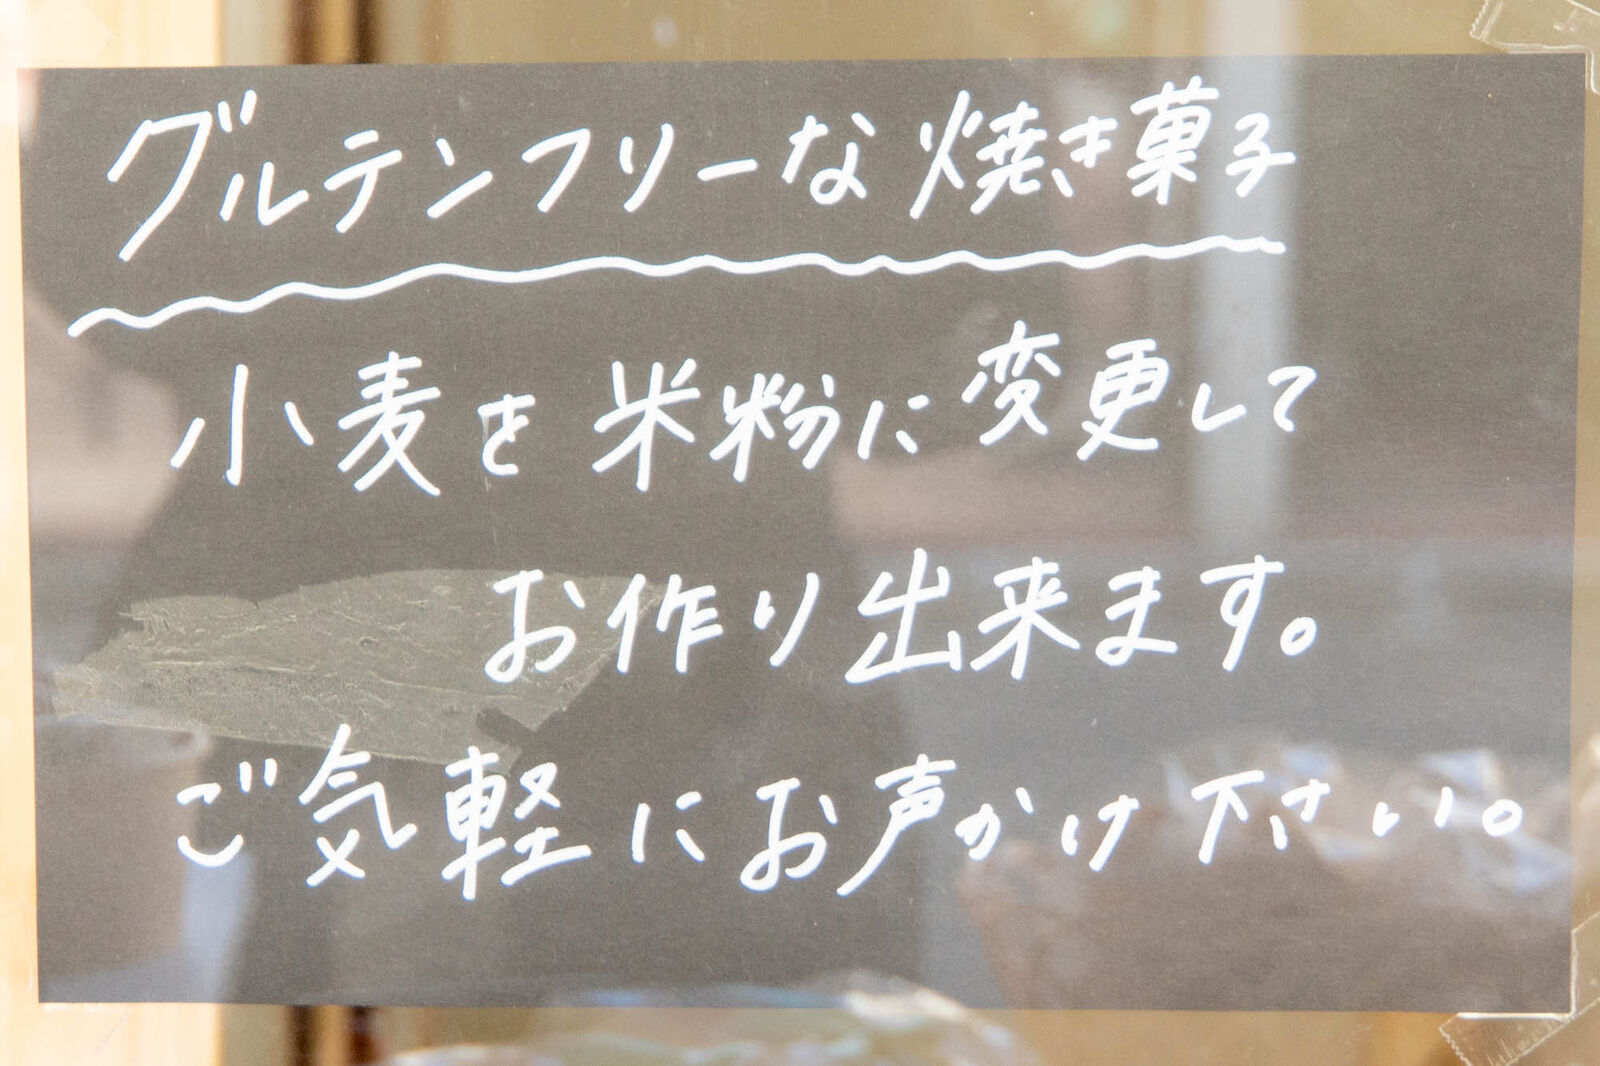 グルテンフリーな焼き菓子
小麦を米粉に変更して
お作り出来ます。
ご気軽にお声かけ下さい。